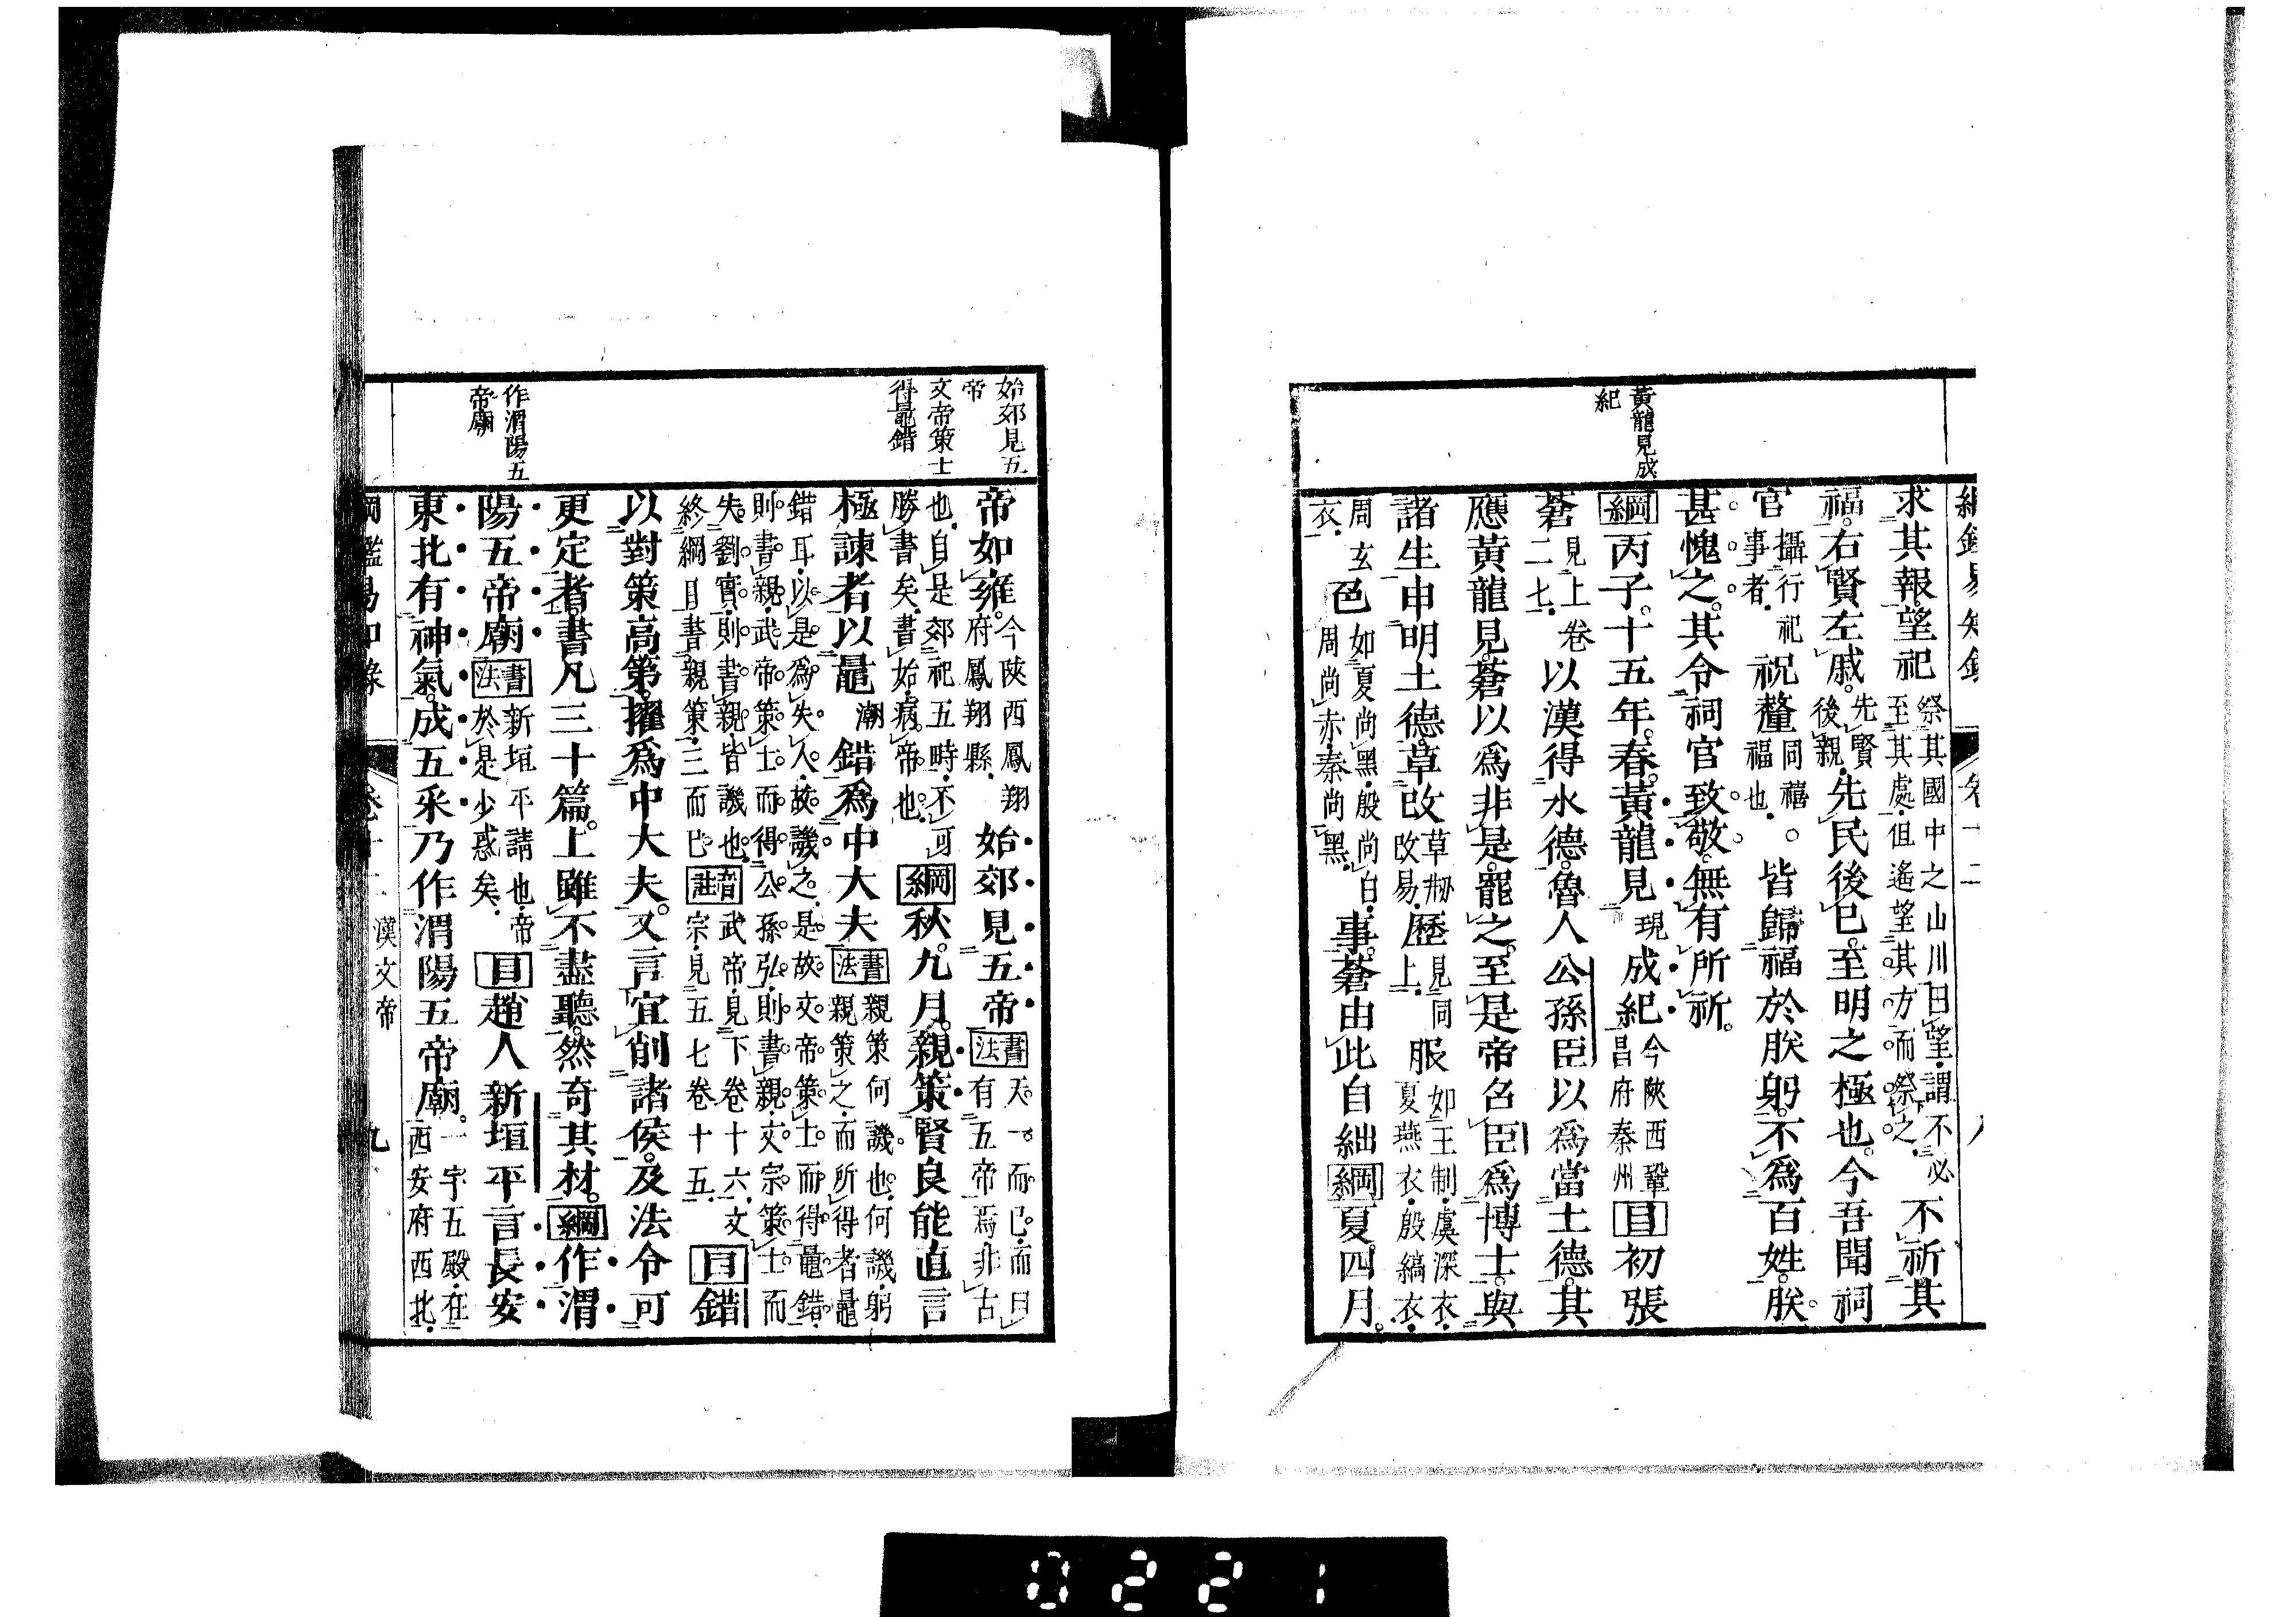 黃龍見成
紀
求其報望祀祭其國中之山川曰望謂不必至其處但遙望其方而祭之不祈其
福右賢左戚先賢後親先民後已至明之極也今吾聞祠
官攝行祀事者祝釐同禧福也皆歸福於朕躬不爲百姓朕
甚愧之其令祠官致敬無有所祈
綱丙子十五年春黃龍見現成紀今陝西鞏昌府秦州目初張
蒼見上卷二七以漢得水德魯人公孫臣以爲當土德其
應黃龍見蒼以爲非是罷之至是帝召臣爲博士與
諸生申明土德草改草刱改易歷見同上服如王制虞深衣夏燕衣殷縞衣
周玄衣色如夏尚黑殷尚白周尚赤秦尚黑事蒼由此自絀綱夏四月
始郊見五
帝
文帝策士
得鼂錯
作渭陽五
帝廟
帝如雍今陝西鳳翔府鳳翔縣始郊見五帝書法天一而已而曰有五帝焉非古
也自是郊祀五時不可勝書矣書始病帝也綱秋九月親策賢良能直言
極諫者以鼂潮錯爲中大夫書法親策何譏也何譏躬親策之而所得者鼂
錯耳以是爲失人故譏之是故文帝策士而得鼂錯
則書親武帝策士而得公孫弘則書親文宗策士而
失劉賁則書親皆譏也終綱目書親策三而已音註武帝見下卷十六文宗見五七卷十五目錯
以對策高第擢爲中大夫又言宜削諸侯及法令可
更定者書凡三十篇上雖不盡聽然奇其材綱作渭
陽五帝廟書法新垣平請也帝於是少惑矣目趙人新垣平言長安
東北有神氣成五采乃作渭陽五帝廟一宇五殿在西安府西北
漢文帝
九
0221